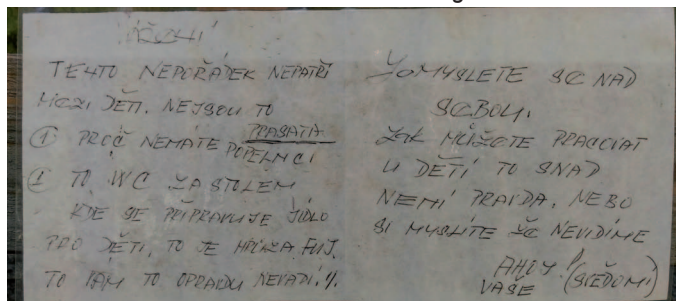 TENTO NEPOŘÁDEK NEPATŘÍ
MEZI DĚTI. NEJSOU TO
PRASATA
① PROČ NEMÁTE POPELNICI
① TO WC ZA STOLEM
KDE SE PŘIPRAVUJE JÍDLO
PRO DĚTI, TO JE HRŮZA FUJ.
TO VÁM TO OPRAVDU NEVADÍ. %.
ZAMYSLETE SE NAD
SEBOU.
JAK MŮŽETE PRACOVAT
U DĚTÍ TO SNAD
NENÍ PRAVDA. NEBO
SI MYSLÍTE ŽE NEVIDÍME
AHOY!
VAŠE (SVĚDOMÍ)